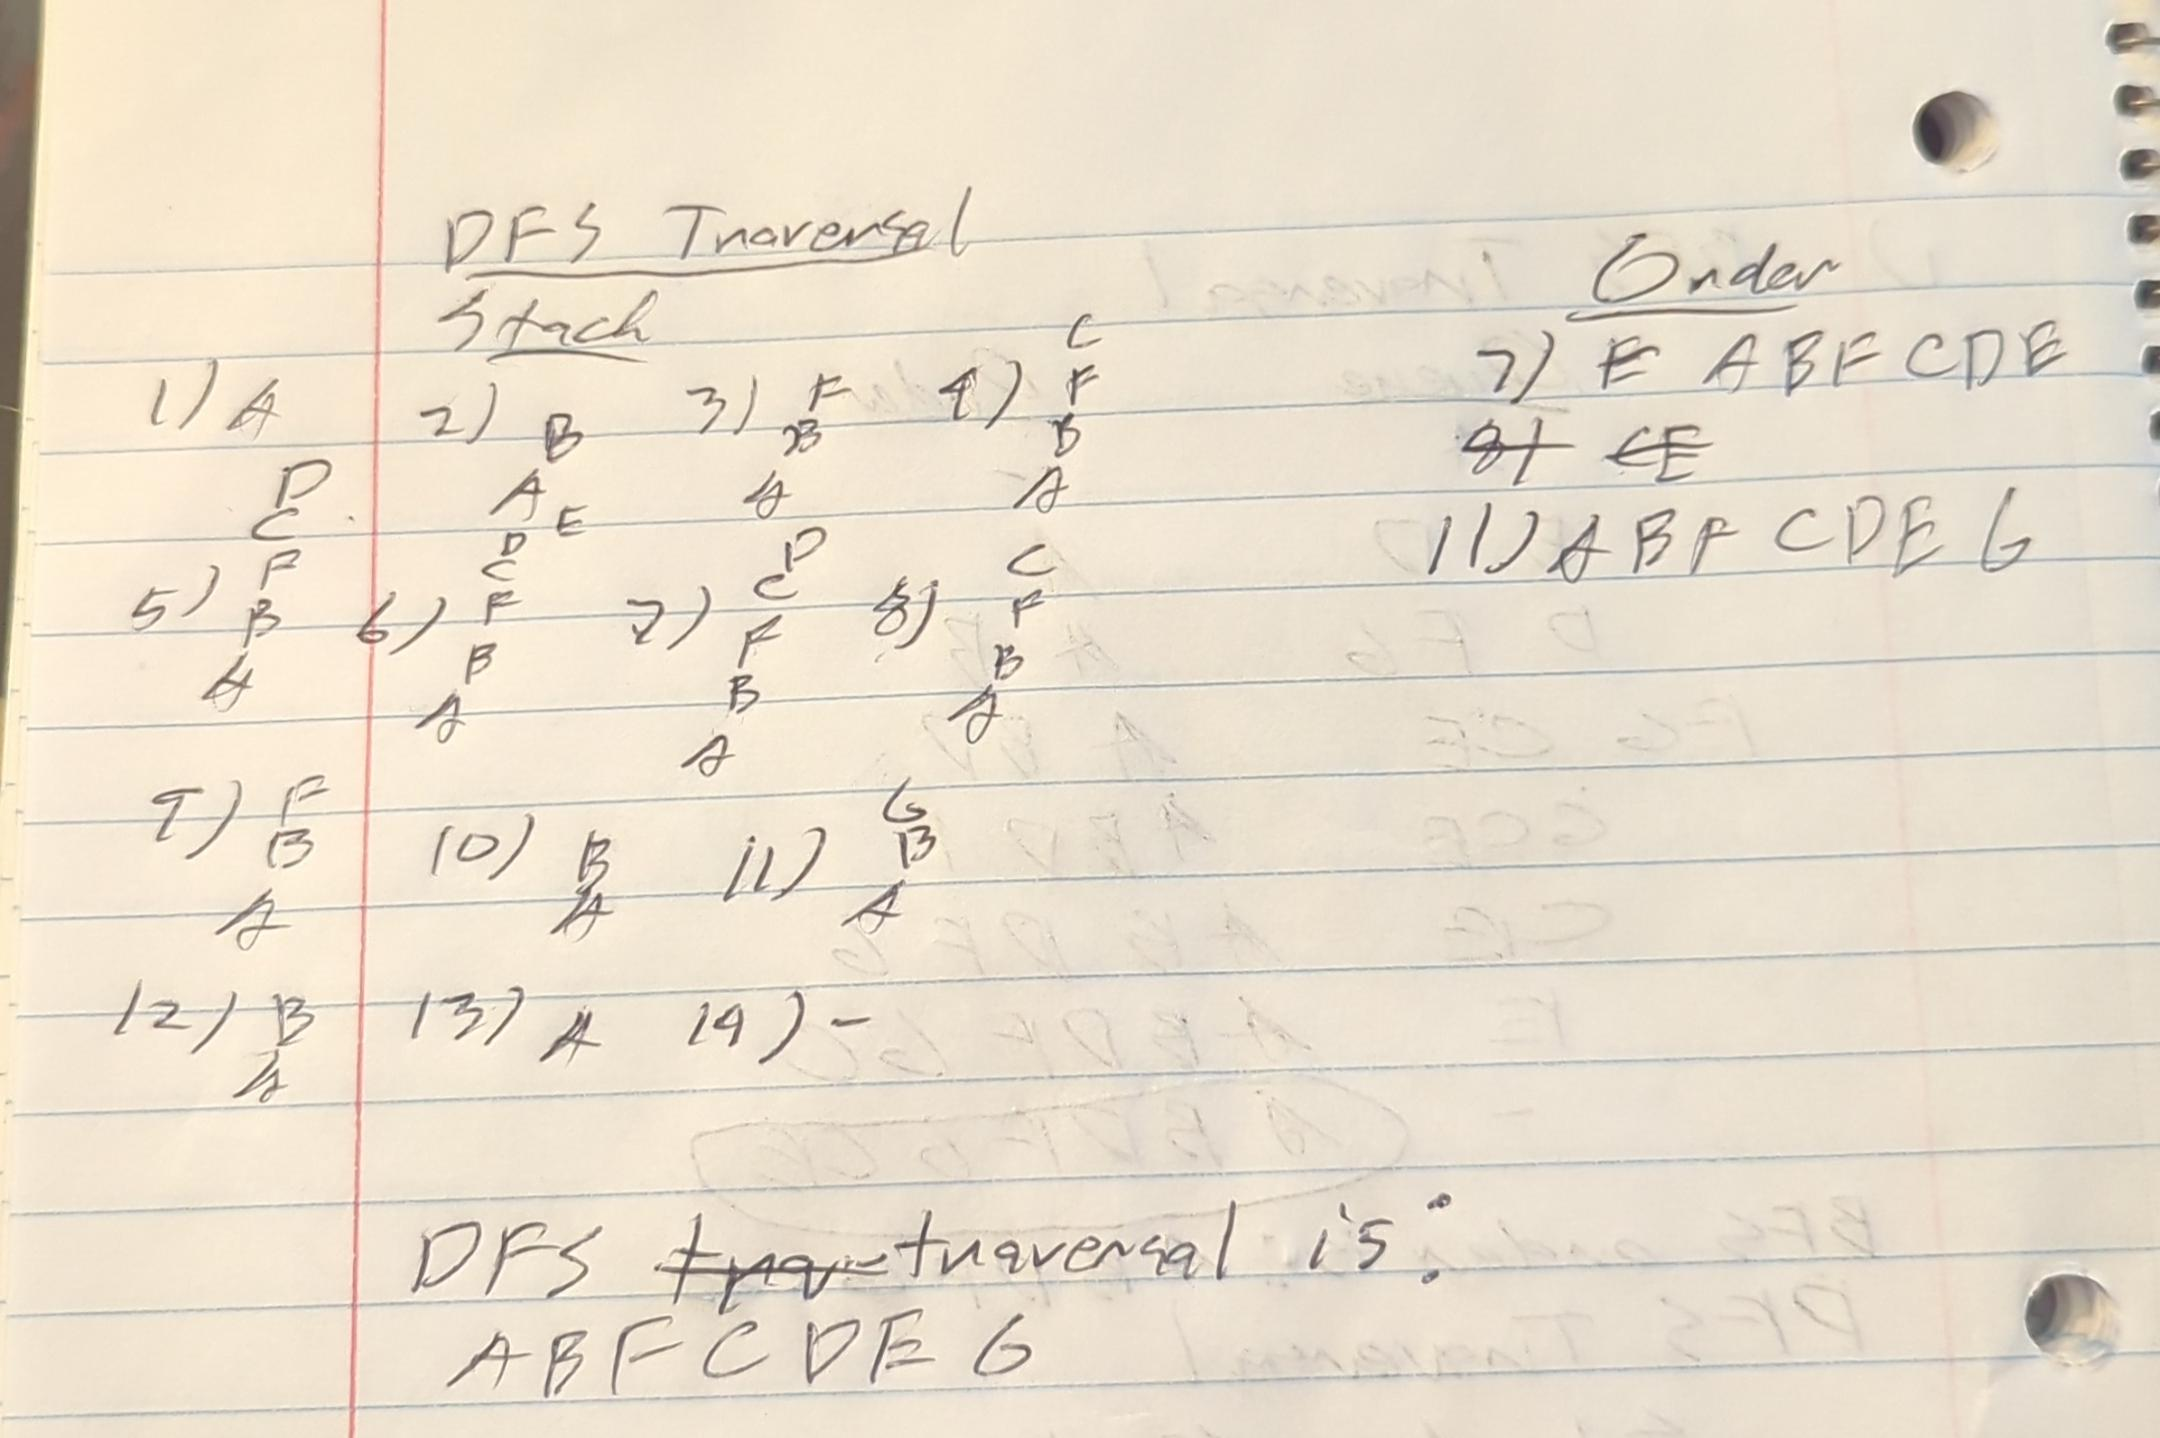 DFS Traversal
Stack
Order
1) A 2) B A 3) F B A 4) C F B A
5) D C F B A 6) E D C F B A 7) D C F B A 8) C F B A
9) F B A 10) B A 11) G B A
12) B A 13) A 14) -
7) E A B F C D E
8) CE
11) A B F C D E G
DFS tra- traversal is:
A B F C D E G